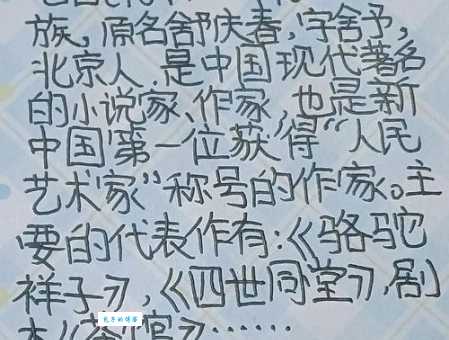 族,原名舒庆春,字舍予,
北京人.是中国现代著名
的小说家、作家,也是新
中国第一位获得“人民
艺术家”称号的作家。主
要的代表作有:《骆驼
祥子》,《四世同堂》,剧
本《茶馆》……